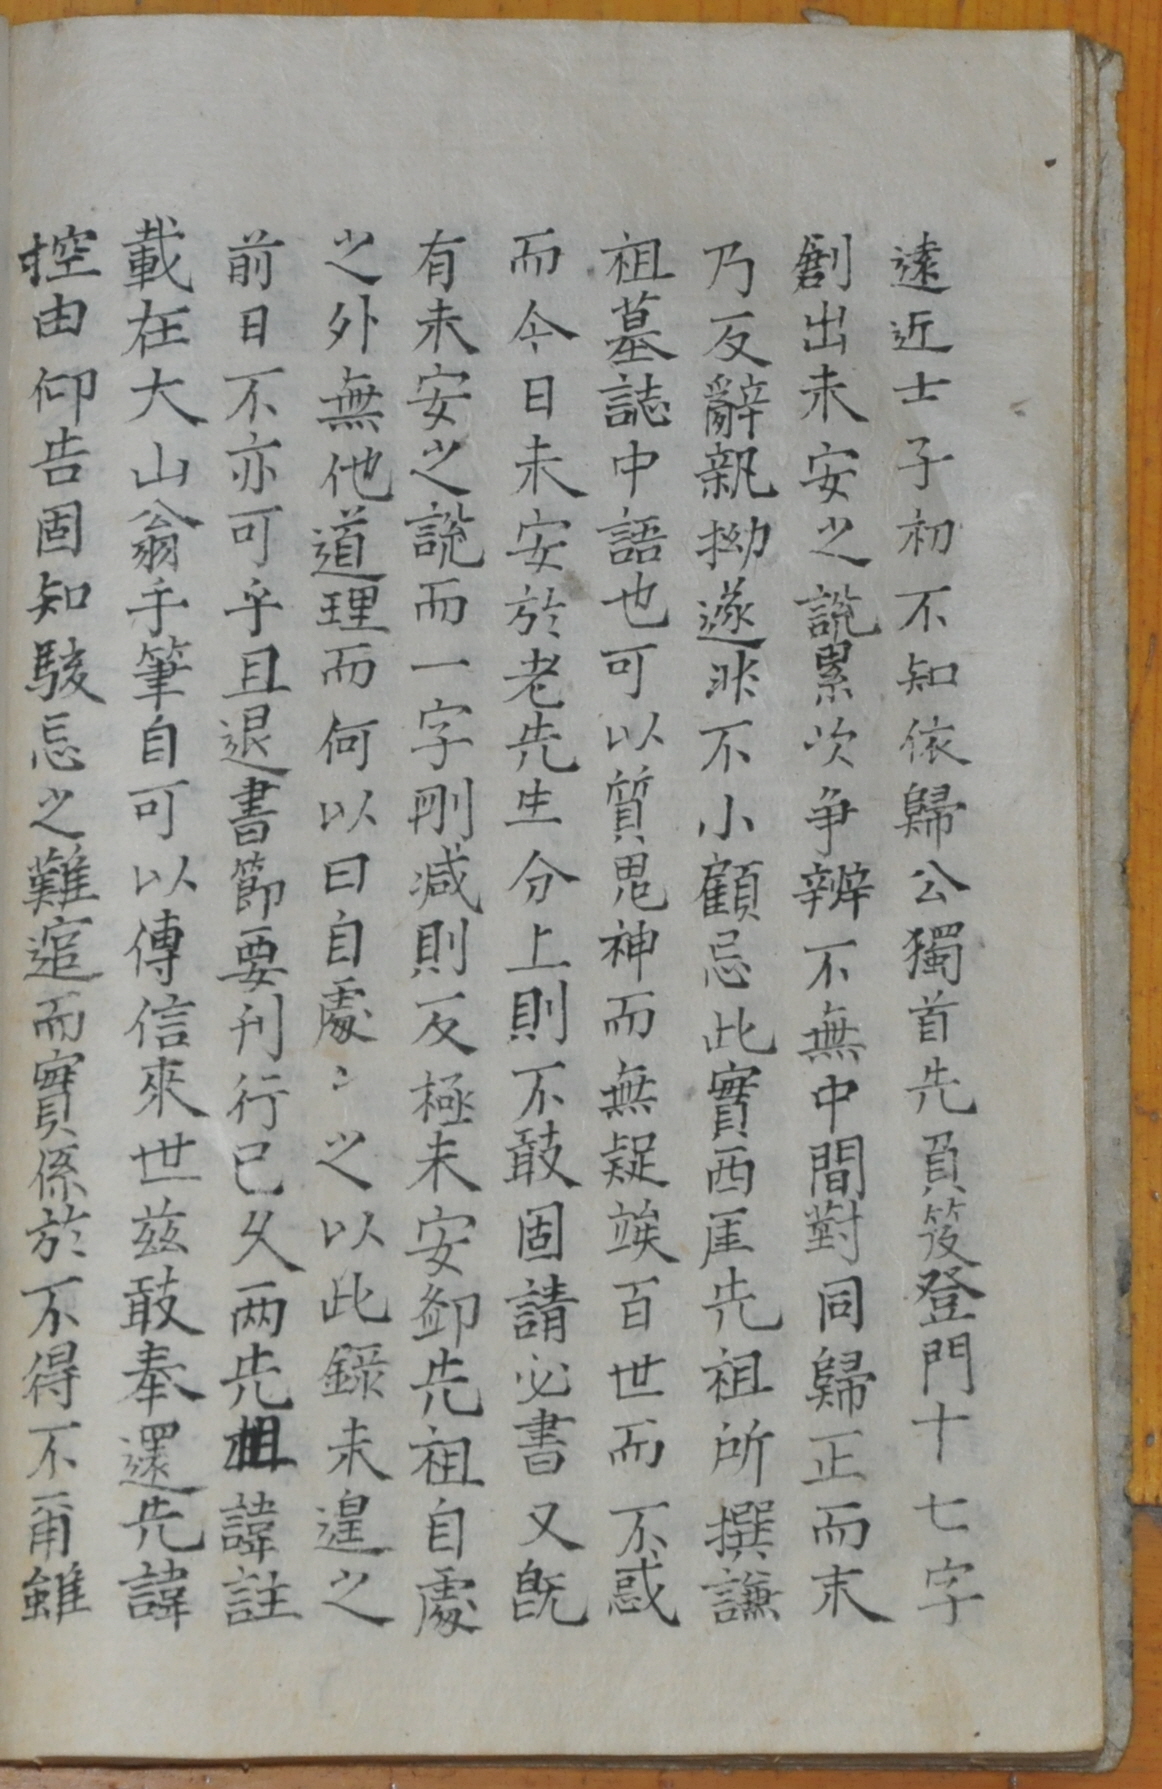 遠近士子初不知依歸公獨首先負笈登門十七字
創出未安之說累次爭辨不無中間對同歸正而末
乃反辭親拗遂非不小顧忌此實西厓先祖所撰謙
祖墓誌中語也可以質鬼神而無疑竢百世而不惑
而今日未安於老先生分上則不敢固請必書又旣
有未安之說而一字刪减則反極未安卸先祖自處
之外無他道理而何以曰自處〻之以此錄未遑之
前日不亦可乎且退書節要刊行已久两先祖諱註
載在大山翁手筆自可以傳信來世玆敢奉還先諱
控由仰告固知駭忘之難逭而實係於不得不甭雖